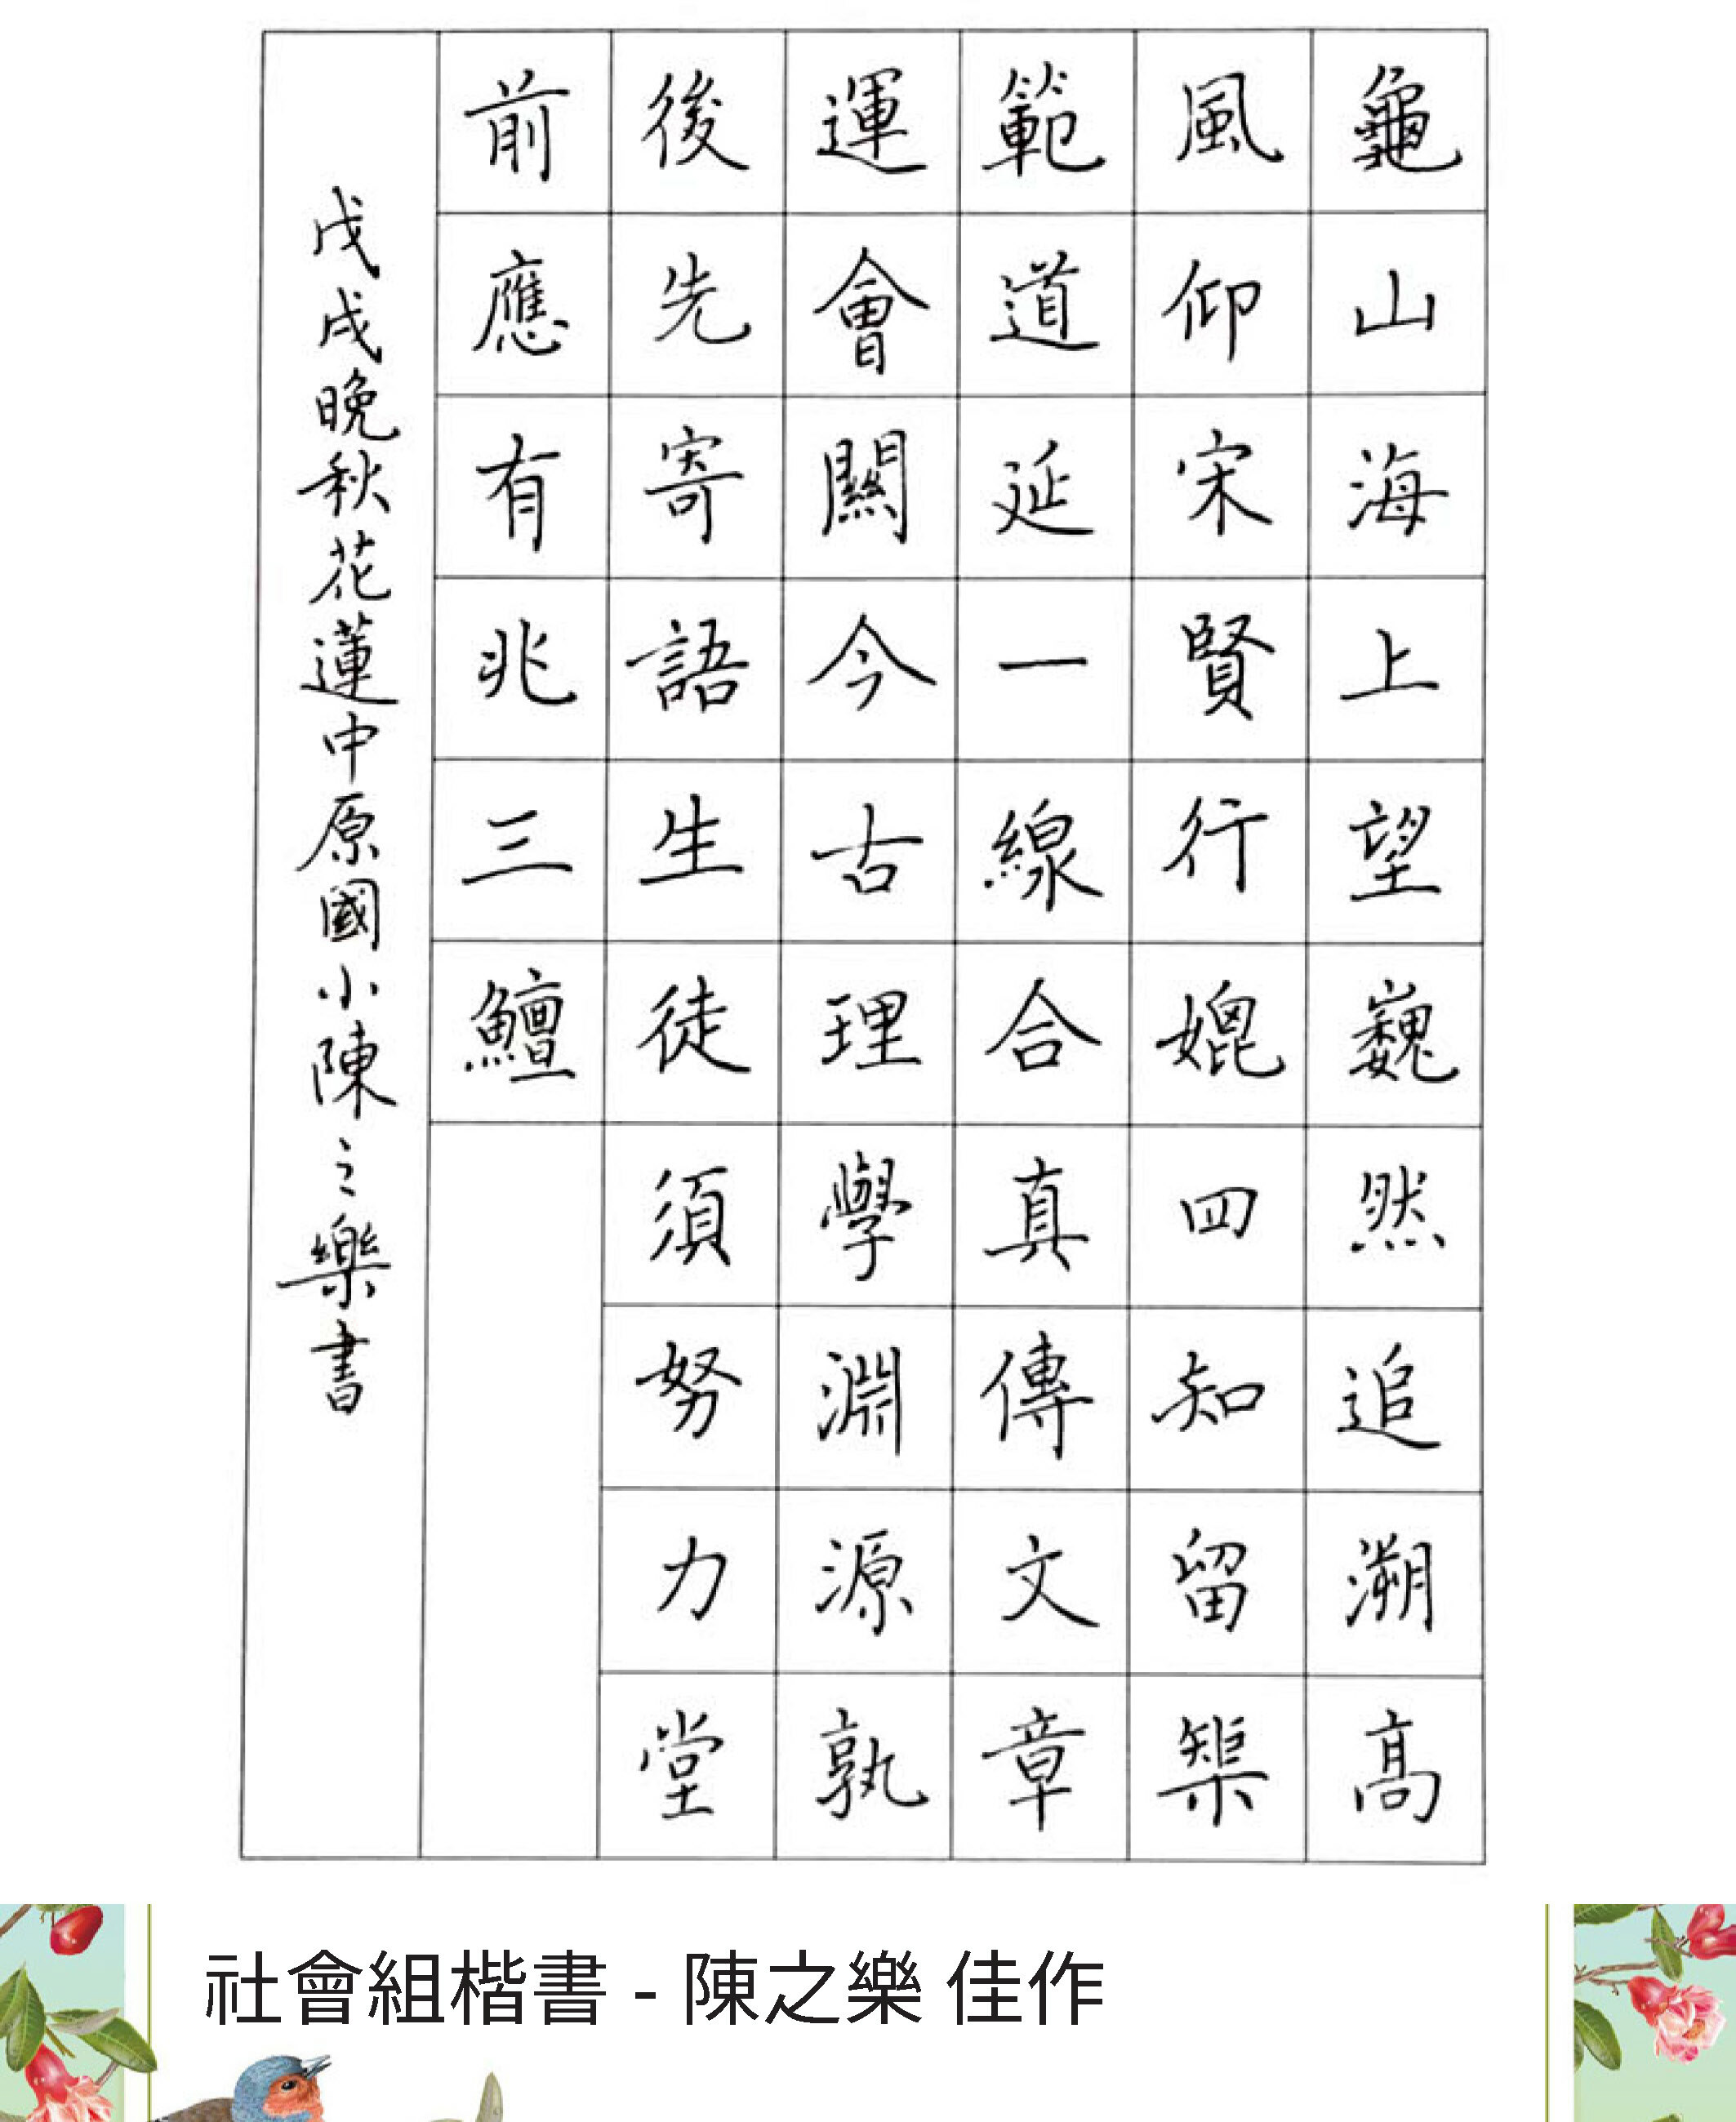 龜山海上望巍然追溯高
風仰宋賢行媲四知留榘
範道延一線合真傳文章
運會關今古理學淵源孰
後先寄語生徒須努力堂
前應有兆三鱣
戊戌晚秋花蓮中原國小陳之樂書
社會組楷書 - 陳之樂 佳作